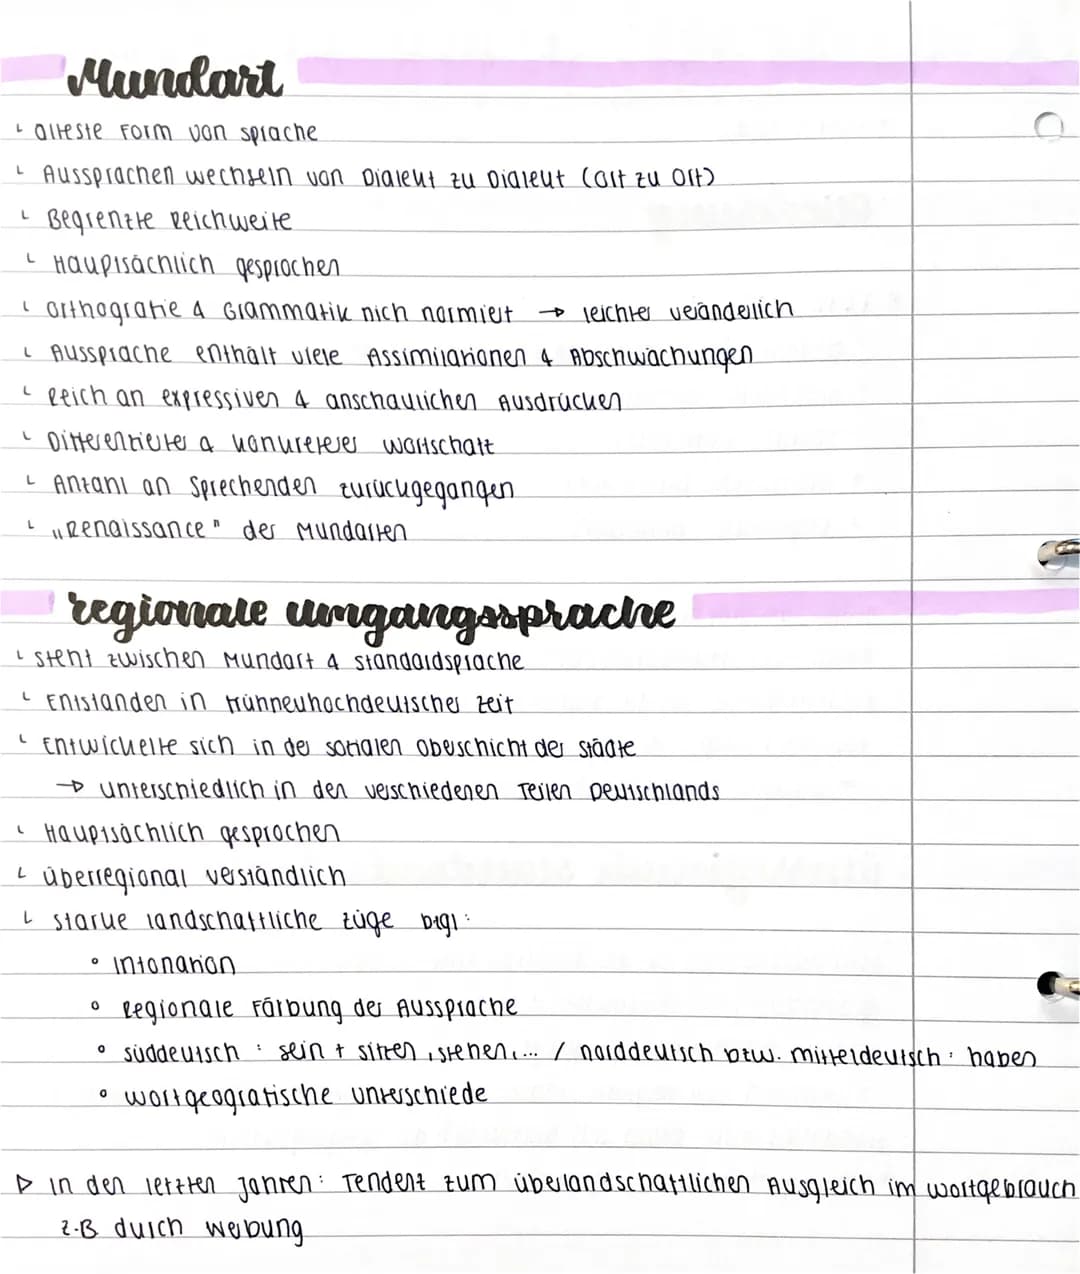 Mundart
↳ älteste Form von Sprache
↳ Aussprachen wechseln von Dialekt zu Dialekt (Ort zu Ort)
↳ Begrenzte Reichweite
↳ Hauptsächlich gesprochen
↳ Orthografie & Grammatik nich normiert → leichter veränderlich
↳ Aussprache enthält viele Assimilationen & Abschwächungen
↳ Reich an expressiven & anschaulichen Ausdrücken
↳ Differenzierter & konkreterer Wortschatt
↳ Antanl an Sprechenden zurückgegangen
↳ „Renaissance" der Mundarten
regionale umgangssprache
↳ steht zwischen Mundart & Standardsprache
↳ Entstanden in frühneuhochdeutscher Zeit
↳ Entwickelte sich in der sozialen Oberschicht der Städte
→ unterschiedlich in den verschiedenen Teilen Deutschlands
↳ Hauptsächlich gesprochen
↳ überregional verständlich
↳ starke landschaftliche Züge bzgl:
° Intonation
° Regionale Färbung der Aussprache
° süddeutsch : sein + sitzen, stehen,... / norddeutsch bzw. mitteldeutsch : haben
° wortgeografische unterschiede
▷ In den letzten Jahren: Tendenz zum überlandschaftlichen Ausgleich im Wortgebrauch
z.B durch Werbung